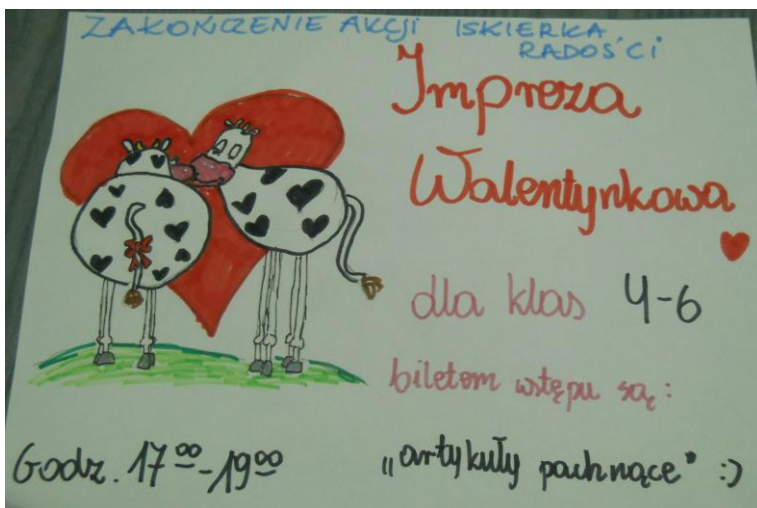 ZAKOŃCZENIE AKCJI ISKIERKA
RADOŚCI
Impreza
Walentynkowa
dla klas 4-6
biletem wstępu są:
Godz. 17⁰⁰-19⁰⁰
„artykuły pachnące" :)